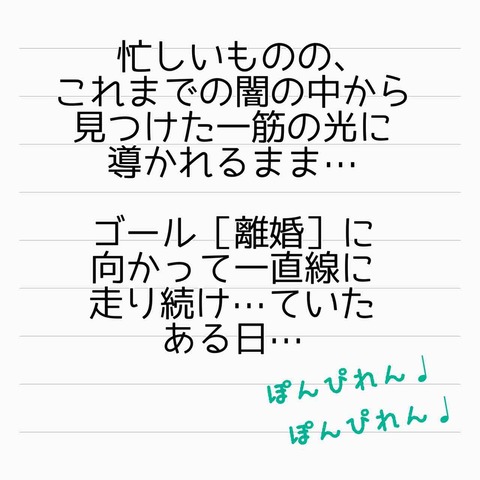 忙しいものの、
これまでの闇の中から
見つけた一筋の光に
導かれるまま…
ゴール［離婚］に
向かって一直線に
走り続け…ていた
ある日…
ぽんぴれん♩
ぽんぴれん♩